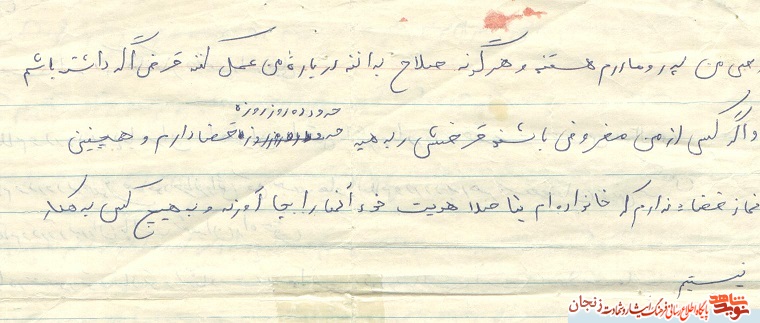 وصی من پدر و مادرم هستند و هرگونه صلاح بدانند در باره من عمل کنند قرضی اگر داشته باشم
حدود ده روز روزه
و اگر کسی از من مقروض باشند قرضش را بدهید قضا دارم و همچنین
نماز قضا ندارم که خانواده ام بنا صلاحدیت خود آنها را بجا آورند و به هیچ کس بدهکار
نیستم
نوید شاهد
پایگاه اطلاع رسانی فرهنگ ایثار و شهادت زنجان